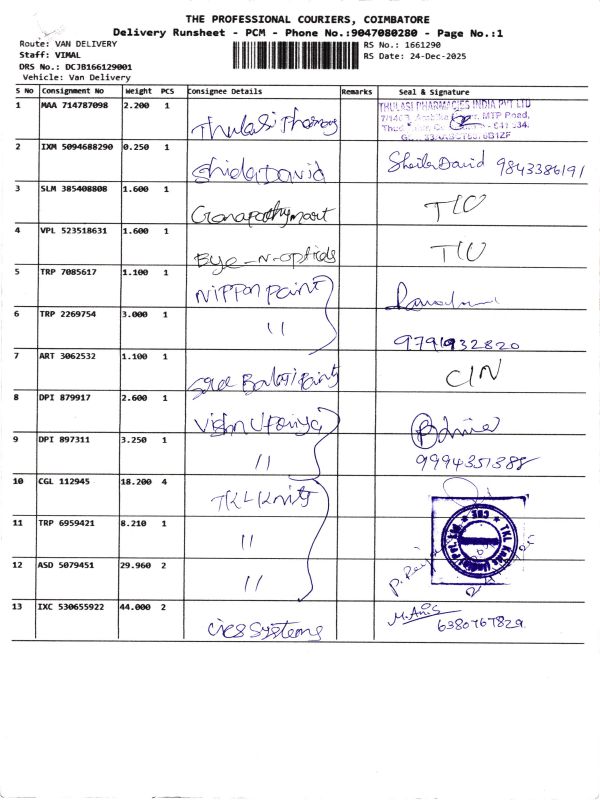 THE PROFESSIONAL COURIERS, COIMBATORE
Delivery Runsheet - PCM - Phone No.:9047080280 - Page No.:1
Route: VAN DELIVERY
RS No.: 1661290
Staff: VIMAL
RS Date: 24-Dec-2025
DRS No.: DCJB166129001
Vehicle: Van Delivery
S No Consignment No Weight PCS Consignee Details Remarks Seal & Signature
1 MAA 714787098 2.200 1 Thulasi Pharmacy THULASI PHARMACIES INDIA PVT LTD
MTP Road,
2 IXM 5094688290 0.250 1 Shiela David Sheila David 9843386191
3 SLM 385408808 1.600 1 Ganapathy mart T/C
4 VPL 523518631 1.600 1 Bye-N-optids T/C
5 TRP 7085617 1.100 1 Nippon paint
6 TRP 2269754 3.000 1 11 9791932820
7 ART 3062532 1.100 1 Balaji Paints C/N
8 DPI 879917 2.600 1
9 DPI 897311 3.250 1 11 9994351388
10 CGL 112945 18.200 4 TKL Knits
11 TRP 6959421 8.210 1 11 TKL Knits (India) Pvt. Ltd. CBE
12 ASD 5079451 29.960 2 11
13 IXC 530655922 44.000 2 cies Systems M. Anis
6380767829